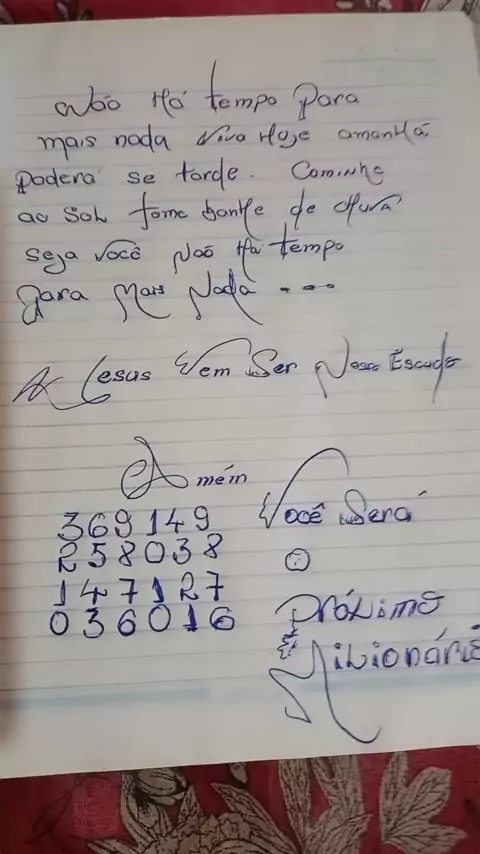 Não Há tempo Para
mais nada Viva Hoje amanhá
Poderá se tarde. Caminhe
ao Sol tome banhe de chuva
Seja Você Não Há tempo
Para Mais Nada ...
Jesus Vem Ser Nosso Escudo
Amém
369149
258038
147127
036016
Você Será
O
PróXimo
Milionário